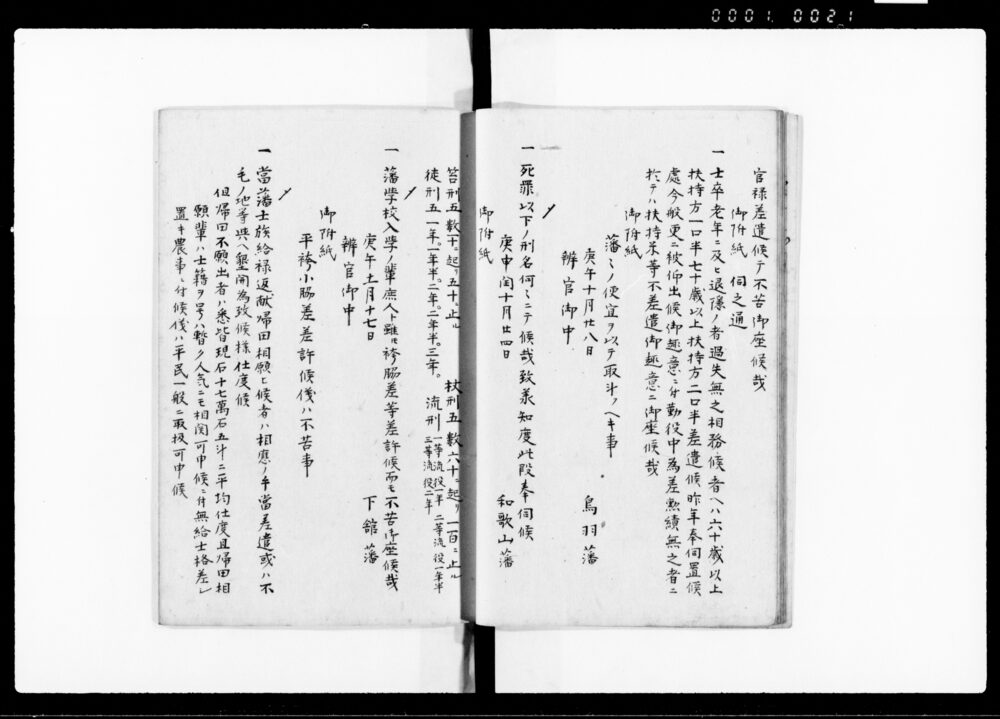 0001 0021
官禄差遣候テ不苦御座候哉
御附紙 伺之通
一 士卒老年ニ及ヒ退隠ノ者過失無之相務候者ヘハ六十歳以上
扶持方一口半七十歳以上扶持方二口半差遣候昨年奉伺置候
處今般更ニ被仰出候御趣意ニ付勤役中為差勲績無之者ニ
於テハ扶持米等不差遣御趣意ニ御座候哉
御附紙
藩々ノ便宜ヲ以テ取斗ノヘキ事
庚午十月廿八日 鳥羽藩
辨官御中
一 死罪以下ノ刑名何々ニテ候哉致承知度此段奉伺候
庚申閏十月廿四日 和歌山藩
御附紙
笞刑五數十ニ起リ五十ニ止ル 杖刑五數六十ニ起リ一百ニ止ル
徒刑五一年。一年半。二年。二年半。三年。 流刑一等流役一年 二等流役一年半 三等流役二年
一 藩學校入学ノ輩庶人ト雖モ袴脇差等差許候而モ不苦御座候哉
庚午十一月十七日 下館藩
辨官御中
御附紙
平袴小脇差差許候儀ハ不苦事
一 當藩士族給禄返献帰田相願ヒ候者ハ相應ノ手當差遣或ハ不
毛ノ地等與ヘ墾開為致候様仕度候
但帰田不願出者ハ悉皆現石十七萬石五斗ニ平均仕度且帰田相
願輩ハ士籍ヲ号ハ暫ク人気ニモ相関可申候ニ付無給士格差
置キ農事ハ付候儀ハ平民一般ニ取扱可申候